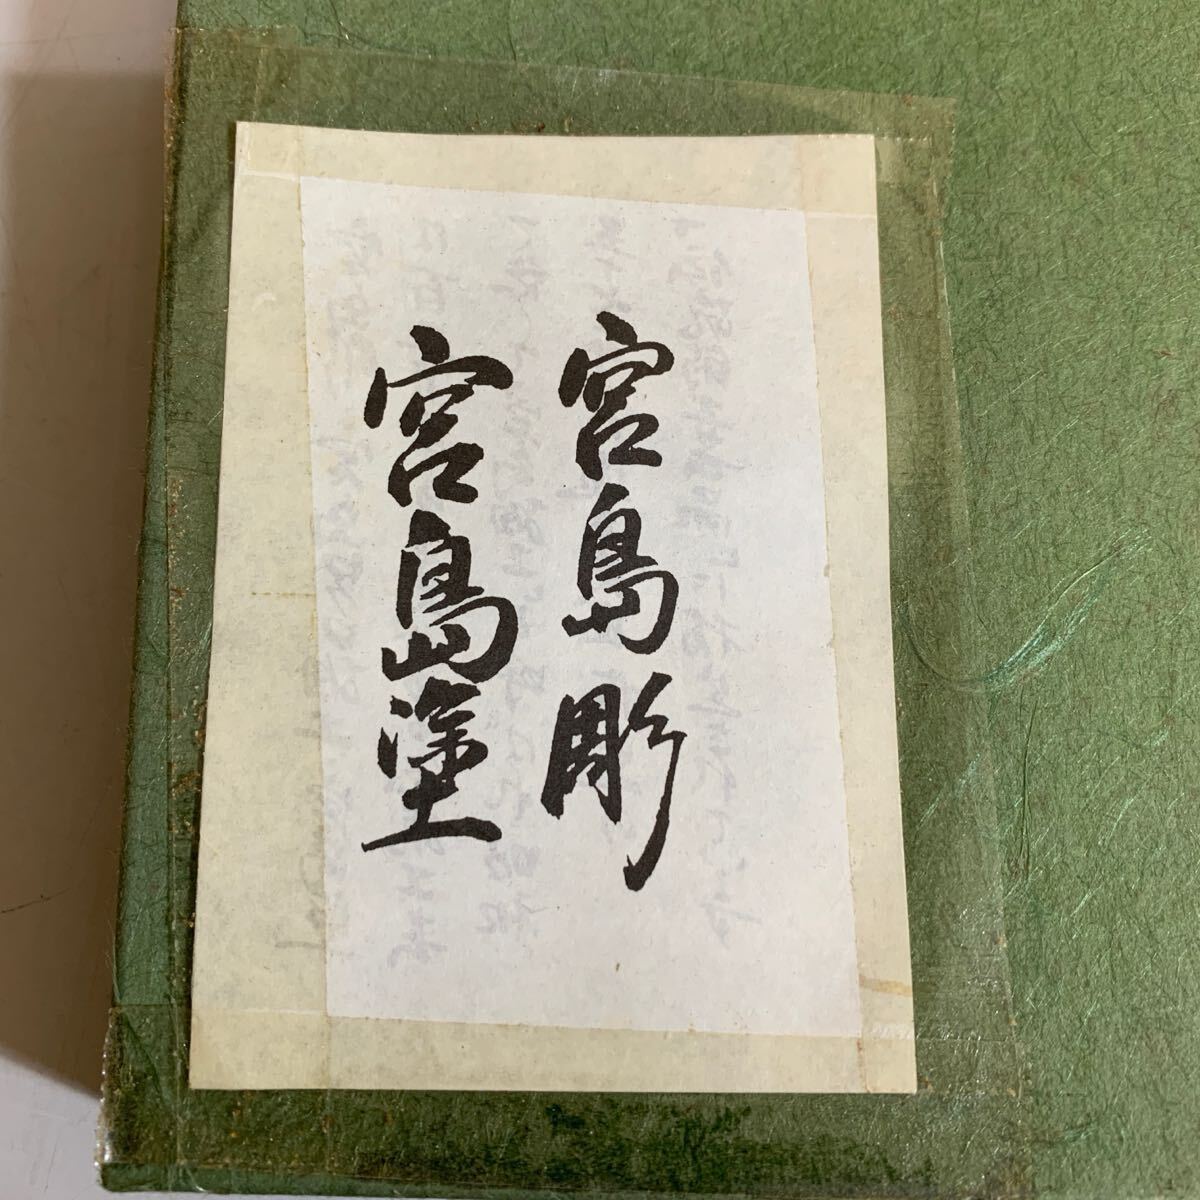 宮島彫
宮島塗